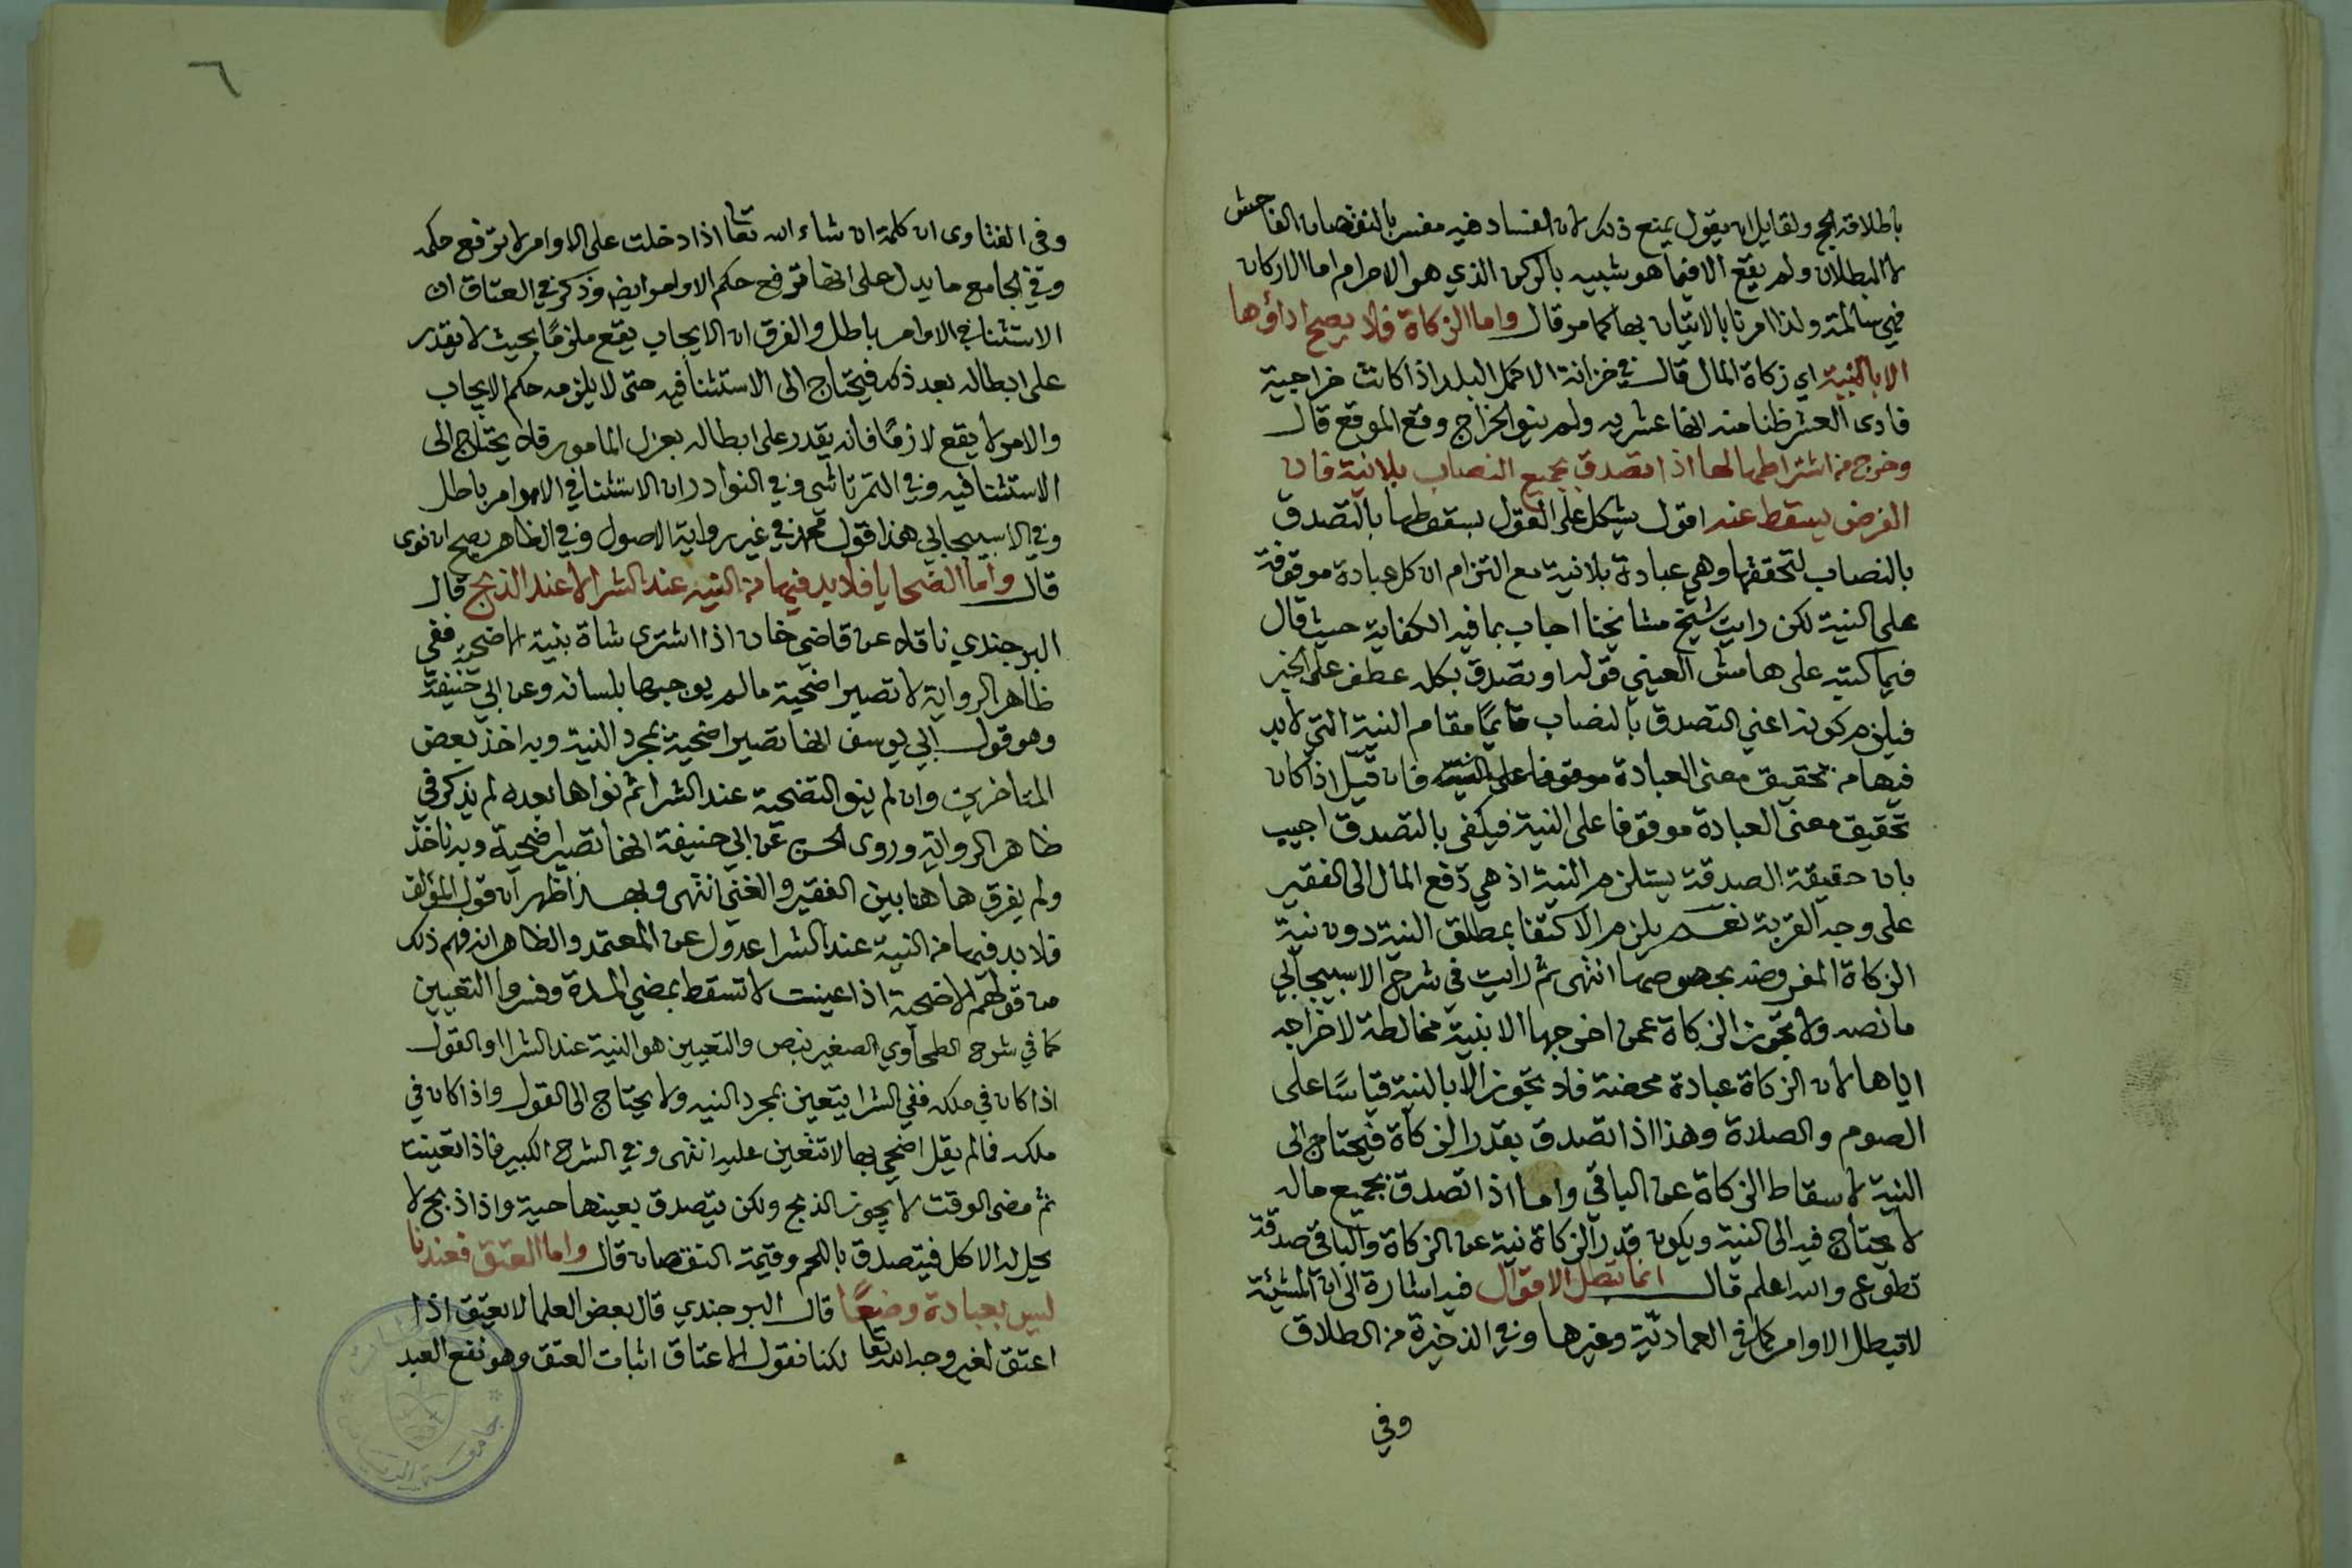 باطلاقه الحج ولقايل ان يقول يمنع ذلك لان الفساد فيه مفسر بالنقصان الفاحش
لا البطلان ولم يقع الا فيما هو شبيه بالركن الذي هو الاحرام اما الاركان
فهي سالمة ولذا امرنا بالاتيان بها كما مر قال واما الزكاة فلا يصح اداؤها
الا بالنية اي زكاة المال قال في خزانة الاكمل البلد اذا كانت خراجية
فادى العشر ظنا منه انها عشريه ولم ينو الخراج وقع الموقع قال
وخرج من اشتراطها لها اذا تصدق بجميع النصاب بلا نية فان
الفرض يسقط عنه اقول يشكل على القول بسقوطها بالتصدق
بالنصاب لتحققها وهي عبادة بلا نية مع التزام ان كل عبادة موقوفة
على النية لكن رايت شيخ مشايخنا اجاب بما فيه الكفاية حيث قال
فيما كتبه على هامش العيني قوله او تصدق بكله عطف على الخبر
فيلزم كونه اعني التصدق بالنصاب قايمًا مقام النية التي لا بد
فيها من تحقيق معنى العبادة موقوفا على النية فان قيل اذا كان
تحقيق معنى العبادة موقوفا على النية فيكفي بالتصدق اجيب
بان حقيقة الصدقة يستلزم النية اذ هي دفع المال الى الفقير
على وجه القربة نعم يلزم الاكتفا بمطلق النية دون نية
الزكاة المفروضه بخصوصها انتهى ثم رايت في شرح الاسبيجابي
ما نصه ولا تجوز الزكاة عمن اخرجها الا بنية مخالطة لاخراجه
اياها لان الزكاة عبادة محضة فلا تجوز الا بالنية قياسًا على
الصوم والصلاة وهذا اذا تصدق بقدر الزكاة فيحتاج الى
النية لاسقاط الزكاة عن الباقي واما اذا تصدق بجميع ماله
لا يحتاج فيه الى النية ويكون قدر الزكاة نية عن الزكاة والباقي صدقة
تطوع والله اعلم قال انما تبطل الاقوال فيه اشارة الى ان المشيئة
لا تبطل الاوامر كما في العمادية وغيرها وفي الذخيرة من الطلاق
وفي
٦
وفي الفتاوى ان كلمة ان شاء الله تعا اذا دخلت على الاوامر لا ترفع حكمه
وفي الجامع ما يدل على انها ترفع حكم الاوامر ايضا وذكر في العتاق ان
الاستثنا في الاوامر باطل والفرق ان الايجاب يقع ملزمًا بحيث لا يقدر
على ابطاله بعد ذلك فيحتاج الى الاستثنا فيه حتى لا يلزمه حكم الايجاب
والامر لا يقع لازمًا فانه يقدر على ابطاله بعزل المامور فلا يحتاج الى
الاستثنا فيه وفي التمرتاشي وفي النوادر ان الاستثنا في الاوامر باطل
وفي الاسبيجابي هذا قول محمد في غير رواية الاصول وفي الظاهر يصح ان نوى
قال واما الضحايا فلا بد فيها من النيه عند الشرا لا عند الذبح قال
البرجندي ناقلا عن قاضي خان اذا اشترى شاة بنية الاضحية ففي
ظاهر الرواية لا تصير اضحية ما لم يوجبها بلسانه وعن ابي حنيفة
وهو قول ابي يوسف انها تصير اضحية بمجرد النية وبه اخذ بعض
المتاخرين وان لم ينو التضحية عند الشرا ثم نواها بعده لم يذكر في
ظاهر الرواية وروى الحسن عن ابي حنيفة انها تصير اضحية وبه ناخذ
ولم يفرق هاهنا بين الفقير والغني انتهى وبهذا ظهر ان قول المؤلف
فلا بد فيها من النية عند الشرا عدول عن المعتمد والظاهر انه فهم ذلك
من قولهم الاضحية اذا عينت لا تسقط بمضي المدة وفسروا التعيين
كما في شرح الطحاوي الصغير بنص والتعيين هو النية عند الشرا او القول
اذا كان في ملكه ففي الشرا يتعين بمجرد النيه ولا يحتاج الى القول واذا كان في
ملكه فما لم يقل اضحي بها لا تتعين عليه انتهى وفي الشرح الكبير فاذا تعينت
ثم مضى الوقت لا يجوز الذبح ولكن يتصدق بعينها حية واذا ذبح لا
يحل له الاكل فيتصدق باللحم وقيمة النقصان قال واما العتق فعندنا
ليس بعبادة وضعًا قال البرجندي قال بعض العلما لا يعتق اذا
اعتق لغير وجه الله تعا لكنا نقول الاعتاق اثبات العتق وهو نفع العبد